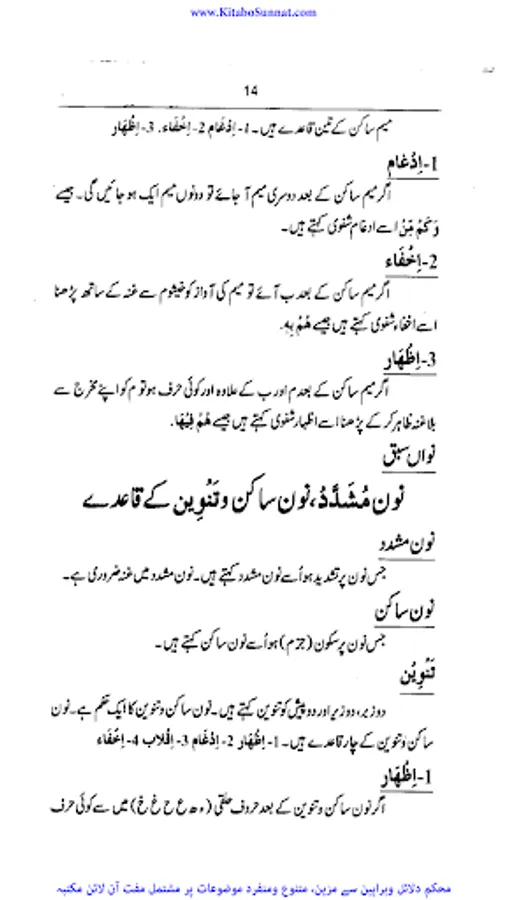 www.KitaboSunnat.com
14
میم ساکن کے تین قاعدے ہیں۔ 1- اِدْغَام 2- اِخْفَاء۔ 3- اِظْهَار
1- اِدْغَام
اگر میم ساکن کے بعد دوسری میم آ جائے تو دونوں میم ایک ہو جائیں گی۔ جیسے
وَكَمْ مِّنْ اسے ادغام شفوی کہتے ہیں۔
2- اِخْفَاء
اگر میم ساکن کے بعد ب آئے تو میم کی آواز کو خیشوم سے غنہ کے ساتھ پڑھنا
اسے اخفاء شفوی کہتے ہیں جیسے هُمْ بِهٖ۔
3- اِظْهَار
اگر میم ساکن کے بعد م اور ب کے علاوہ اور کوئی حرف ہو تو م کو اپنے مخرج سے
بلا غنہ ظاہر کر کے پڑھنا اسے اظہار شفوی کہتے ہیں جیسے هُمْ فِيْهَا۔
نواں سبق
نون مُشَدَّدْ، نون ساکن و تَنْوِین کے قاعدے
نون مشدد
جس نون پر تشدید ہو اُسے نون مشدد کہتے ہیں۔ نون مشدد میں غنہ ضروری ہے۔
نون ساکن
جس نون پر سکون (جزم) ہو اُسے نون ساکن کہتے ہیں۔
تَنْوِیْن
دو زبر، دو زیر اور دو پیش کو تنوین کہتے ہیں۔ نون ساکن و تنوین کا ایک حکم ہے۔ نون
ساکن و تنوین کے چار قاعدے ہیں۔ 1- اِظْهَار 2- اِدْغَام 3- اِقْلَاب 4- اِخْفَاء
1- اِظْهَار
اگر نون ساکن و تنوین کے بعد حروف حلقی (ء ھ ع ح غ خ) میں سے کوئی حرف
محکم دلائل وبراہین سے مزین، متنوع ومنفرد موضوعات پر مشتمل مفت آن لائن مکتبہ